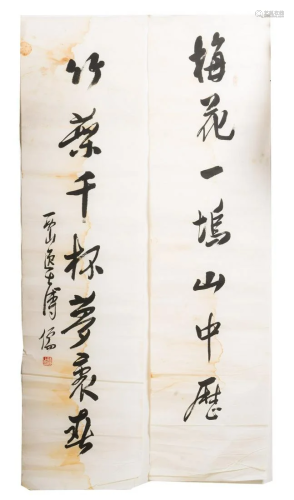 梅花一塢山中曆
竹葉千杯夢裏春
西山逸士溥儒